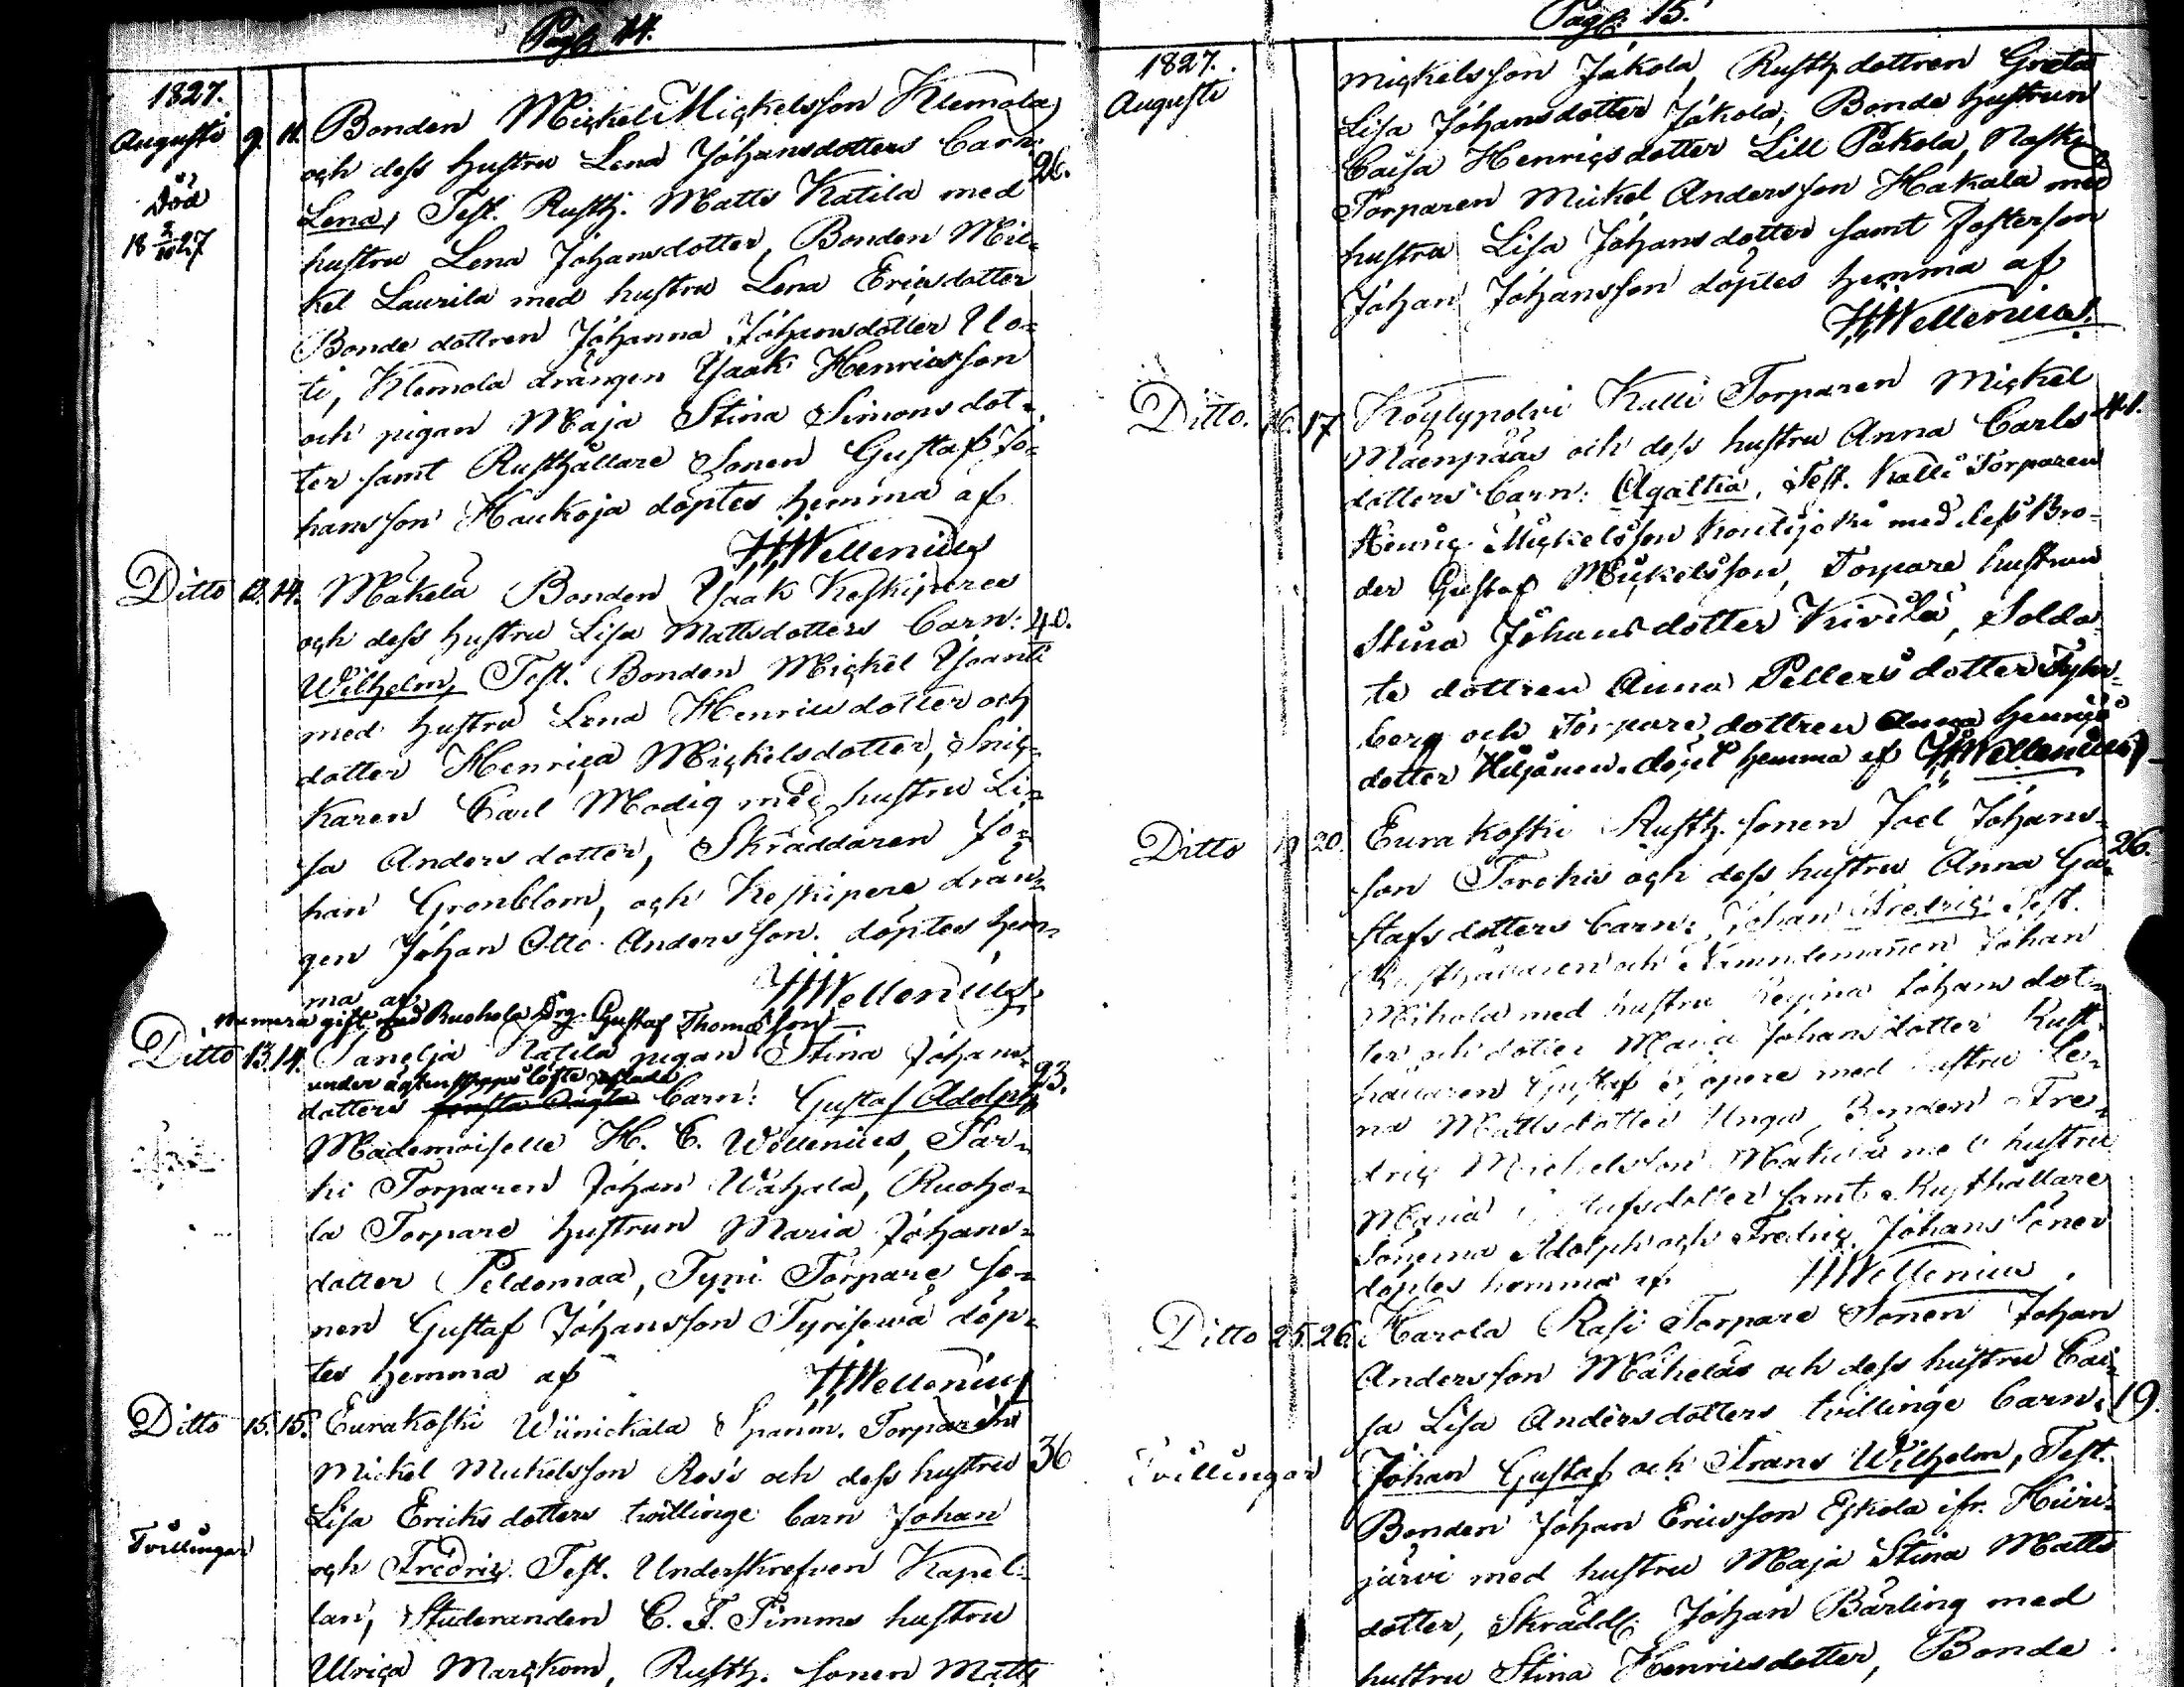 Pag: 14.
1827.
Augusti 9. 11. Bonden Mickel Mickelsson Klemola
och dess hustru Lena Johansdotters Barn: 26.
Död
Lena, Test. Rusth. Matts Katila med
18 27
hustru Lena Johansdotter, Bonden Mic-
kel Laurila med hustru Lena Ericsdotter
Bonde dottren Johanna Johansdotter Uo-
ti, Klemola drängen Isaak Henricsson
och pigan Maja Stina Simonsdot-
ter samt Rusthållare Sonen Gustaf Jo-
hansson Haukoja döptes hemma af
HWellenius
Ditto 12. 14. Mäkelä Bonden Isaak Keskiperes
och dess hustru Lisa Mattsdotters Barn: 40.
Wilhelm, Test. Bonden Mickel Yoanti
med hustru Lena Henricsdotter och
dotter Henrica Mickelsdotter, Snic-
karen Carl Modig med hustru Li-
sa Andersdotter, Skräddaren Jo-
han Grönblom, och Keskipere drän-
gen Johan Otto Andersson. döptes hem-
ma af HWellenius
numera gift med Ruohola Drg. Gustaf Thomasson
Ditto 13. 14. Katila pigan Stina Johans- 93.
under ägtenskaps löfte aflade
dotters Barn: Gustaf Adolph
Mademoiselle H. C. Wellenius, Pär-
ki Torparen Johan Wähälä, Ruoho-
la Torpare hustrun Maria Johans-
dotter Peldomaa, Tyni Torpare So-
nen Gustaf Johansson Tyrisewä döp-
tes hemma af HWellenius
Ditto 15. 15. Eurakoski Wiinickala Spanm. Torparen
Mickel Mickelsson Rosi och dess hustru 36
Lisa Ericksdotters tvillinge barn Johan
Tvillingar
och Fredric. Test. Underskrefven Kapel-
lan, Studeranden C. F. Timms hustru
Ulrica Marckom, Rusth. Sonen Matts
Pag: 15.
1827.
Augusti
Mickelsson Jäkola, Rusth. dottren Greta
Lisa Johansdotter Jäkola, Bonde hustrun
Caisa Henricsdotter Lill Päkola, Naski
Torparen Mickel Andersson Hakala med
hustru Lisa Johansdotter samt Fosterson
Johan Johansson döptes hemma af
HWellenius.
Ditto. 16. 17 Köylypolvi Kalli Torparen Mickel
Mäenpääs och dess hustru Anna Carls- 41.
dotters Barn: Agatha, Test. Kalli Torparen
Henric Mickelsson Kontijoki med dess Bro-
der Gustaf Mickelsson, Torpare hustrun
Stina Johansdotter Kivilä, Solda-
te dottren Anna Pettersdotter
berg och Torpare dottren Anna Henrics
dotter Hiljanen. döpt hemma af HWellenius
Ditto 19 20. Eurakoski Rusth. Sonen Joel Johans-
son Torckis och dess hustru Anna Gu- 26.
stafsdotters Barn: Johan Fredric Test.
Rusthållaren och Nämndemannen Johan
Mikola med hustru Regina Johansdot-
ter och dotter Maria Johansdotter Rust-
hållaren Gustaf Sjöpere med hustru Le-
na Mattsdotter Unga, Bonden Fre-
dric Michelsson Mäkelä med hustru
Maria Gustafsdotter samt Rusthållare
Sönerna Adolph och Fredric Johans Söner
döptes hemma af HWellenius
Ditto 25. 26. Karola Rasi Torpare Sonen Johan
Andersson Mäkeläs och dess hustru Cai-
sa Lisa Andersdotters tvillinge Barn: 19.
Tvillingar
Johan Gustaf och Frans Wilhelm, Test.
Bonden Johan Ericsson Eskola ifr. Hvri-
järvi med hustru Maja Stina Matts
dotter, Skrädd. Johan Bärling med
hustru Stina Henricsdotter, Bonde